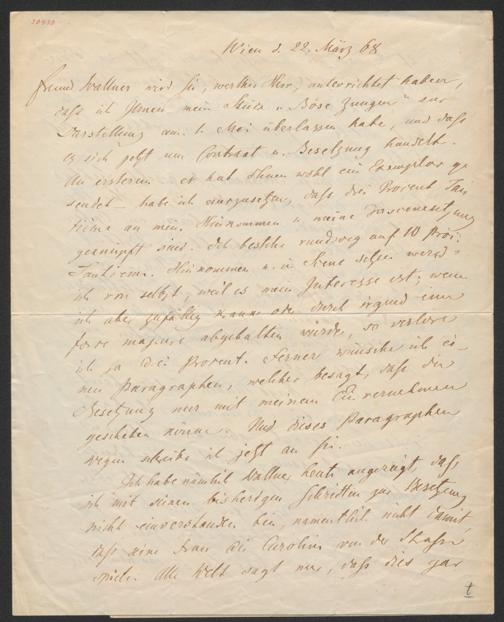 30930
Wien d. 22. März 68
Freund Wallner wird Sie, werther Herr, unterrichtet haben,
daß ich Ihnen mein Stück „Böse Zungen" zur
Darstellung am 1. Mai überlassen habe, und daß
es sich jetzt um Contract u. Besetzung handelt.
An ersterem er hat Ihnen wohl ein Exemplar ge
sendet habe ich auszusetzen, daß drei Procent Tan
tième an mein Hinkommen u. meine Inscenesetzung
geknüpft sind. Ich bestehe rundweg auf 10 Proc.
Tantièmen. Hinkommen u. in Scene setzen werde
ich von selbst, weil es mein Interesse ist; wenn
ich aber zufällig krank oder durch irgend eine
force majeure abgehalten würde, so verlöre
ich ja drei Procent. Ferner wünsche ich ei-
nen Paragraphen, welcher besagt, daß die
Besetzung nur mit meinem Einvernehmen
geschehen könne. Und dieses Paragraphen
wegen schreibe ich jetzt an Sie.
Ich habe nämlich Wallner heute angezeigt, daß
ich mit seinen bisherigen Schritten zur Besetzung
nicht einverstanden bin, namentlich nicht damit
daß seine Frau die Caroline von der Straß
spiele. Alle Welt sagt mir, daß dies gar